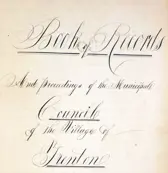 Book of Records
And proceedings of the Municipal
Council
of the Village of
Trenton